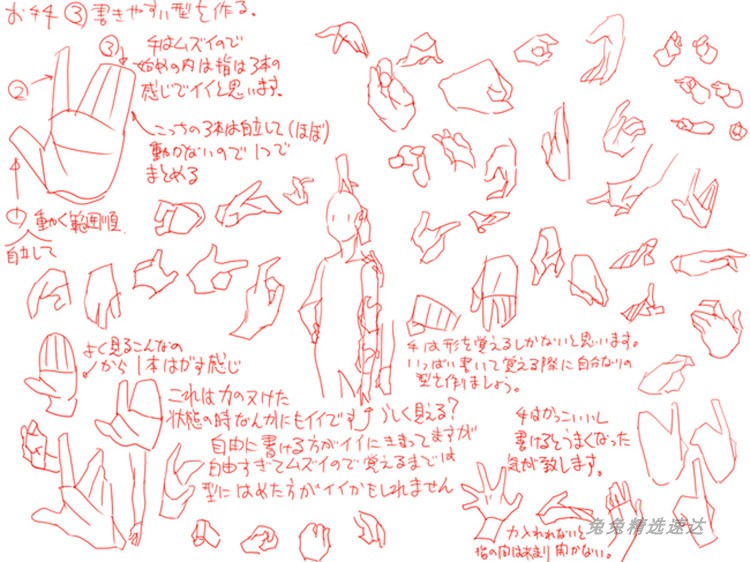 お手々 ③書きやすい型を作る.
③
手はムズイので
始めの内は指は3本の
感じでイイと思います.
②
こっちの3本は自立して(ほぼ)
動かないので1つで
まとめる
① 動かく範囲順.
自立して
よく見るこんなの
から1本はがす感じ
これは力のヌけた
状態の時なんかにもイイですら
らしく見える?
自由に書ける方がイイにきまってますが
自由すぎてムズイので覚えるまでは
型にはめた方がイイかもしれません
手は形を覚えるしかないと思います.
いっぱい書いて覚える際に自分なりの
型を作りましょう。
手はかっこいいし
書けるとうまくなった
気が致します。
力入れないと
指の間はあまり開かない.
兔兔精选速达